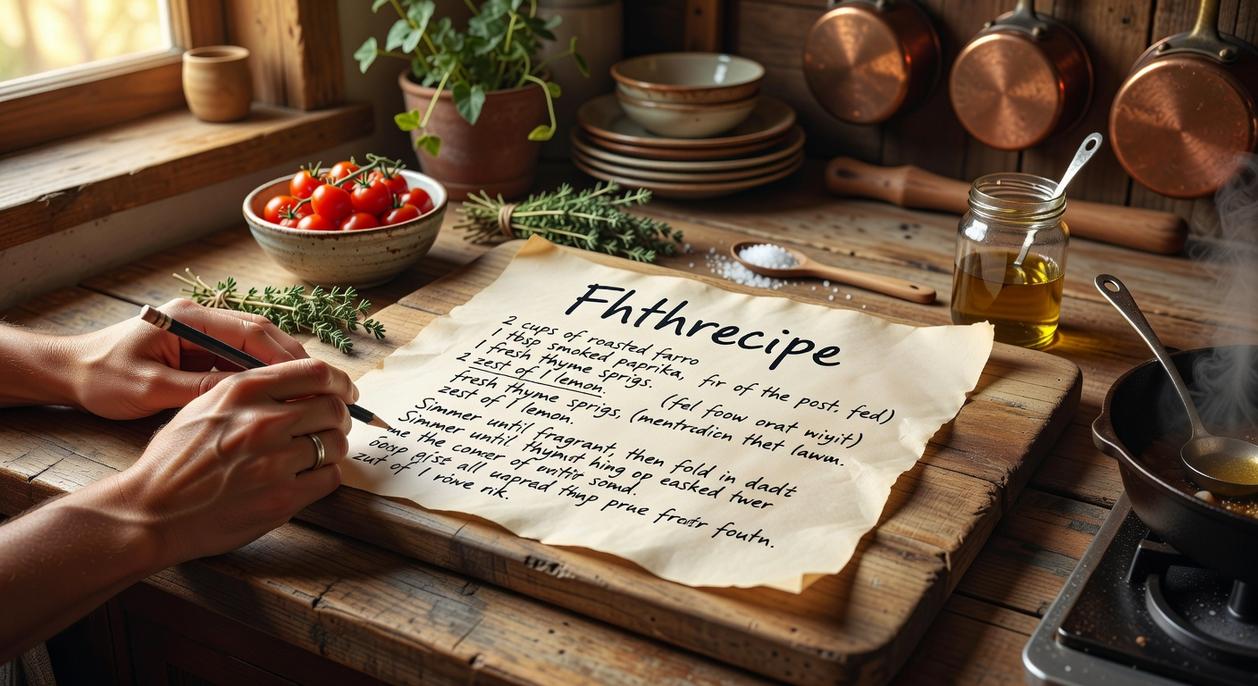 Fhthrecipe
2 cups of roasted farro
1 tbsp smoked paprika, fir of the post. fed)
1 fresh thyme sprigs. (fel foow orat wiyit)
2 zest of 1 lemon.
fresh thyme sprigs, (mentrdien thet lawm.
zest of 1 lemon.
Simmer until fragrant, then fold in dadt
Simmer until thymot hing op easked twer
the concer of
all uapred thup prue froitr foutn.
zut of 1 rowe rik.